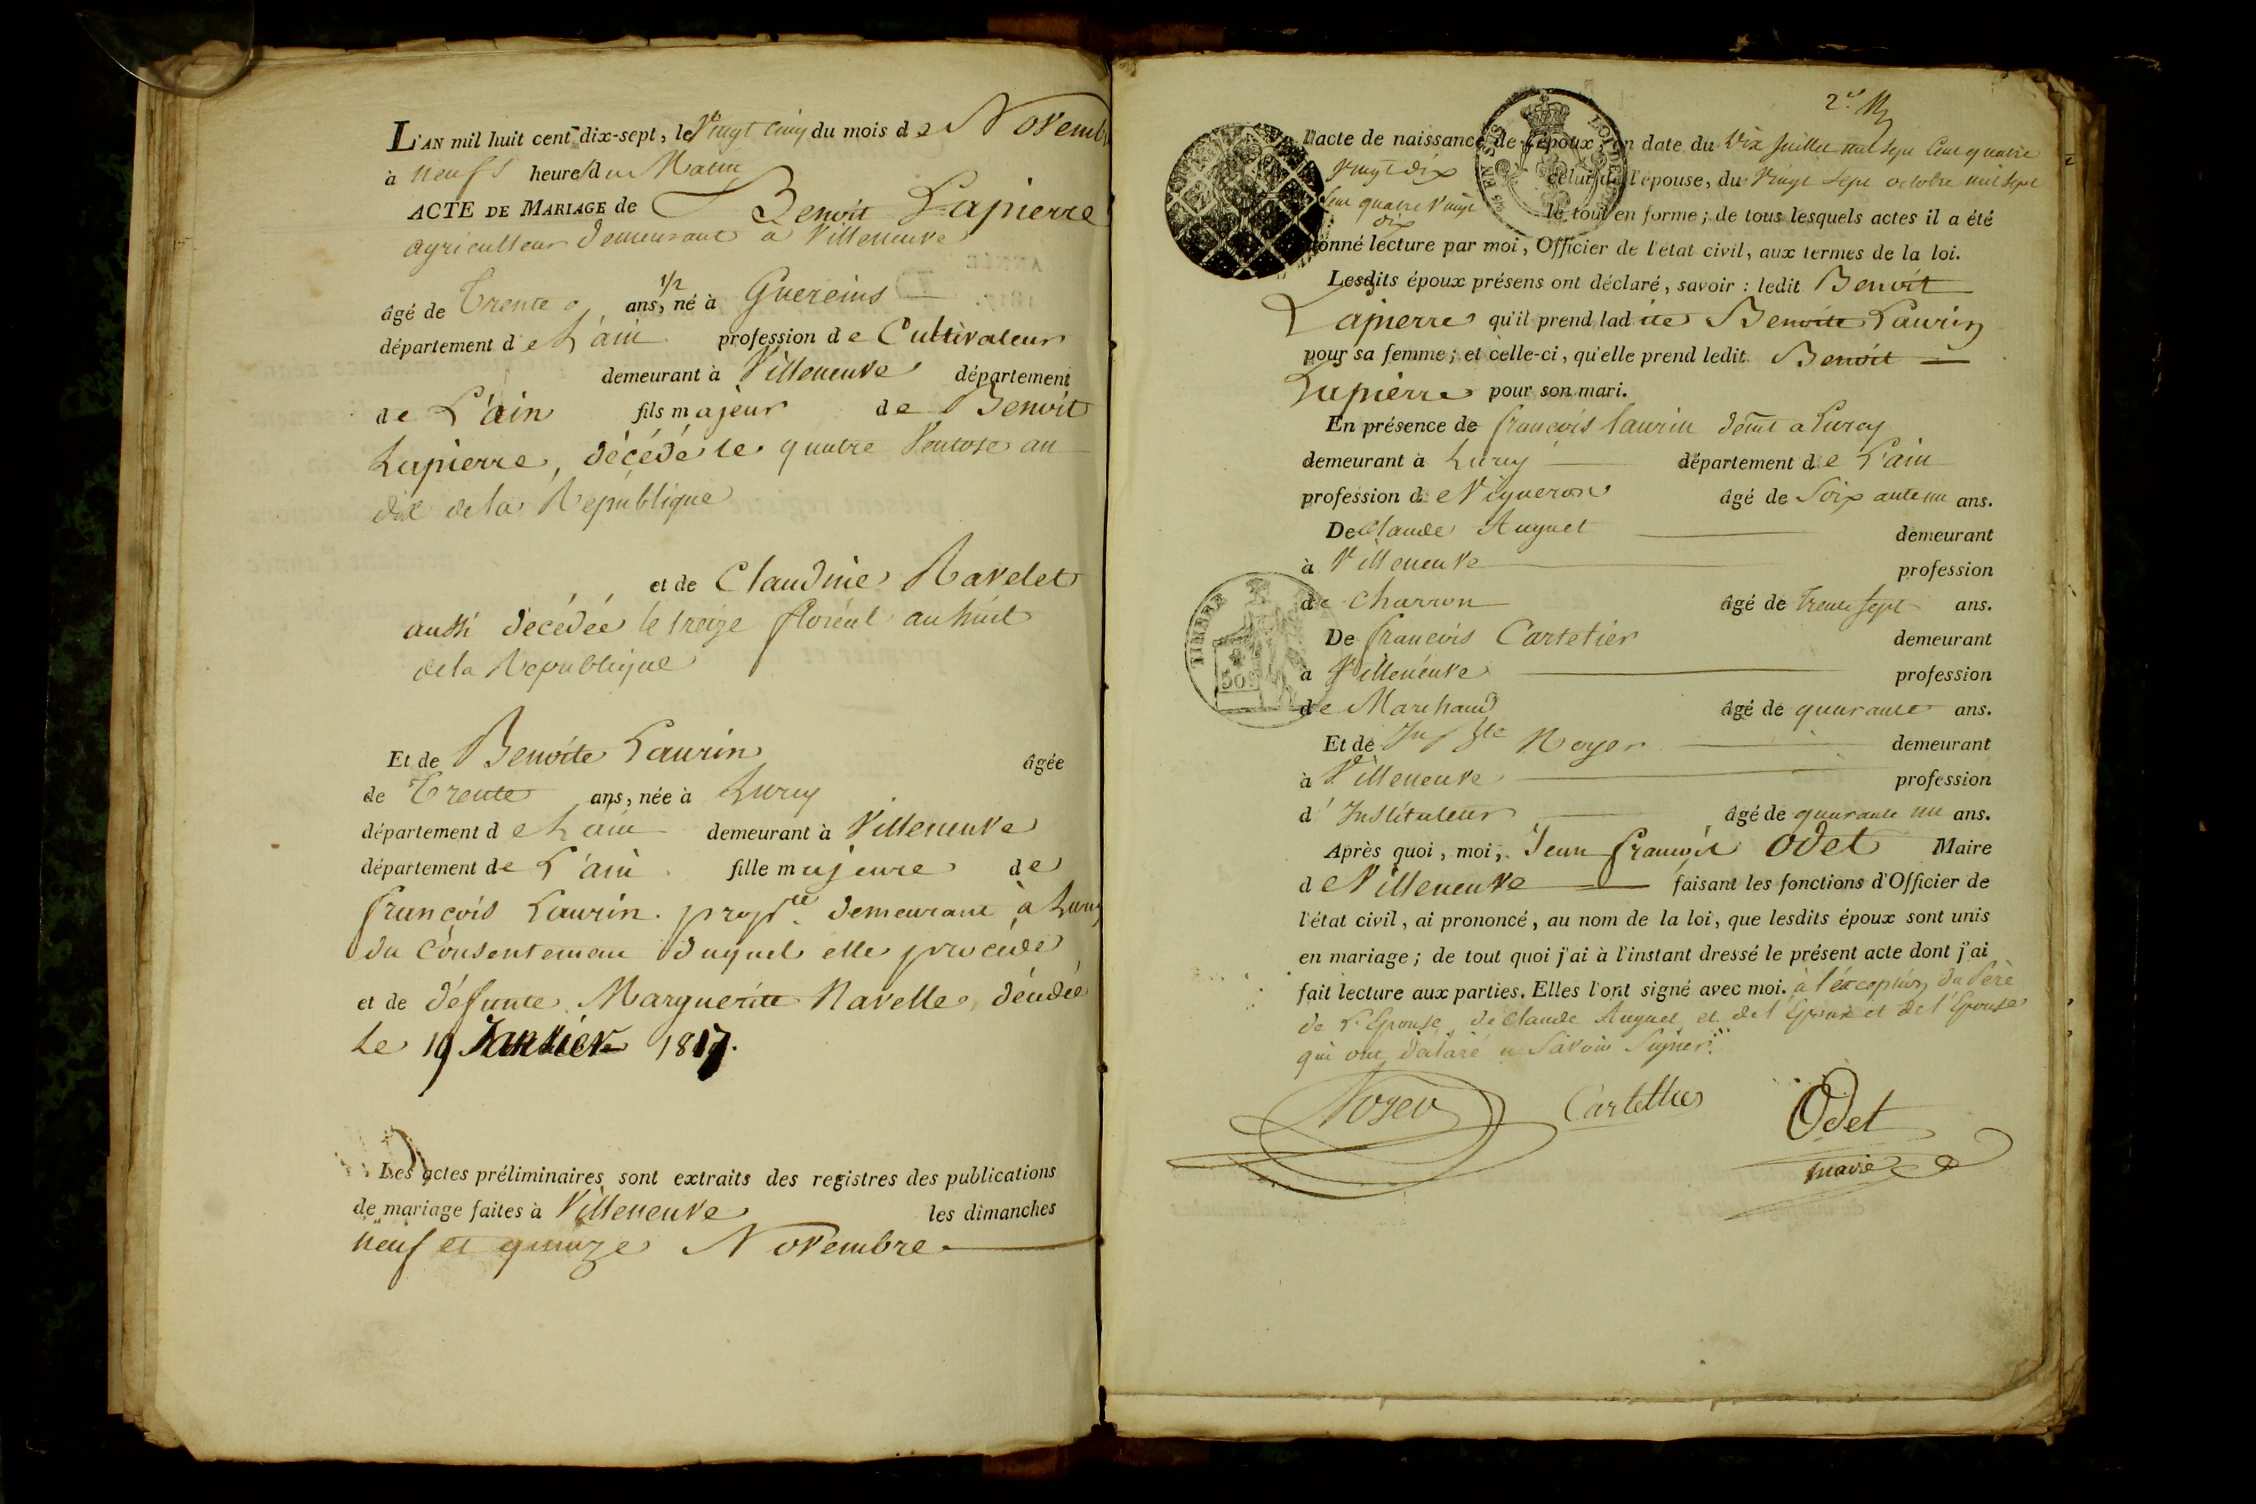 L'AN mil huit cent dix-sept, le Vingt Cinq du mois de Novembre
à neufs heures du Matin
ACTE DE MARIAGE de Benoit Lapierre
agriculteur demeurant à Villeneuve
âgé de Trente ans, 1/2 né à Guereins
département de L'ain profession de Cultivateur
demeurant à Villeneuve département
de L'ain fils majeur de Benoit
Lapierre, décédé le quatre Ventose an
dix de la République
et de Claudine Ravelet
aussi décédée le treize floréal an huit
de la Republique
Et de Benoite Laurin âgée
de Trente ans, née à Lurcy
département de L'ain demeurant à Villeneuve
département de L'ain fille majeure de
françois Laurin. propre demeurant à Lurcy
du Consentement duquel elle procède
et de défunte Marguerite Navelle, décédée
le 19 Janvier 1817.
Les actes préliminaires sont extraits des registres des publications
de mariage faites à Villeneuve les dimanches
neuf et quinze Novembre
2e
L'acte de naissance de l'époux, en date du Dix juillet mil sept Cent quatre
vingt dix celui de l'épouse, du Vingt Sept octobre mil sept
Cent quatre Vingt dix le tout en forme; de tous lesquels actes il a été
donné lecture par moi, Officier de l'état civil, aux termes de la loi.
Lesdits époux présens ont déclaré, savoir: ledit Benoit
Lapierre qu'il prend ladite Benoite Laurin
pour sa femme; et celle-ci, qu'elle prend ledit Benoit
Lapierre pour son mari.
En présence de françois laurin demt a Lurcy
demeurant à Lurcy département de L'ain
profession de Vigneron âgé de Soixante un ans.
De Claude Auguet demeurant
à Villeneuve profession
de Charron âgé de Trente Sept ans.
De françois Cartetier demeurant
a Villeneuve profession
de Marchand âgé de quarante ans.
Et de Jn Bte Noyer demeurant
à Villeneuve profession
d'Instituteur âgé de quarante un ans.
Après quoi, moi, Jean françois Odet Maire
de Villeneuve faisant les fonctions d'Officier de
l'état civil, ai prononcé, au nom de la loi, que lesdits époux sont unis
en mariage; de tout quoi j'ai à l'instant dressé le présent acte dont j'ai
fait lecture aux parties. Elles l'ont signé avec moi. à l'éxception du Père
de L'Epouse, de Claude Auguet et de l'Epoux et de l'Epouse
qui ont déclaré ne Savoir Signer.
Noyer Cartetier Odet
maire
TIMBRE
50c